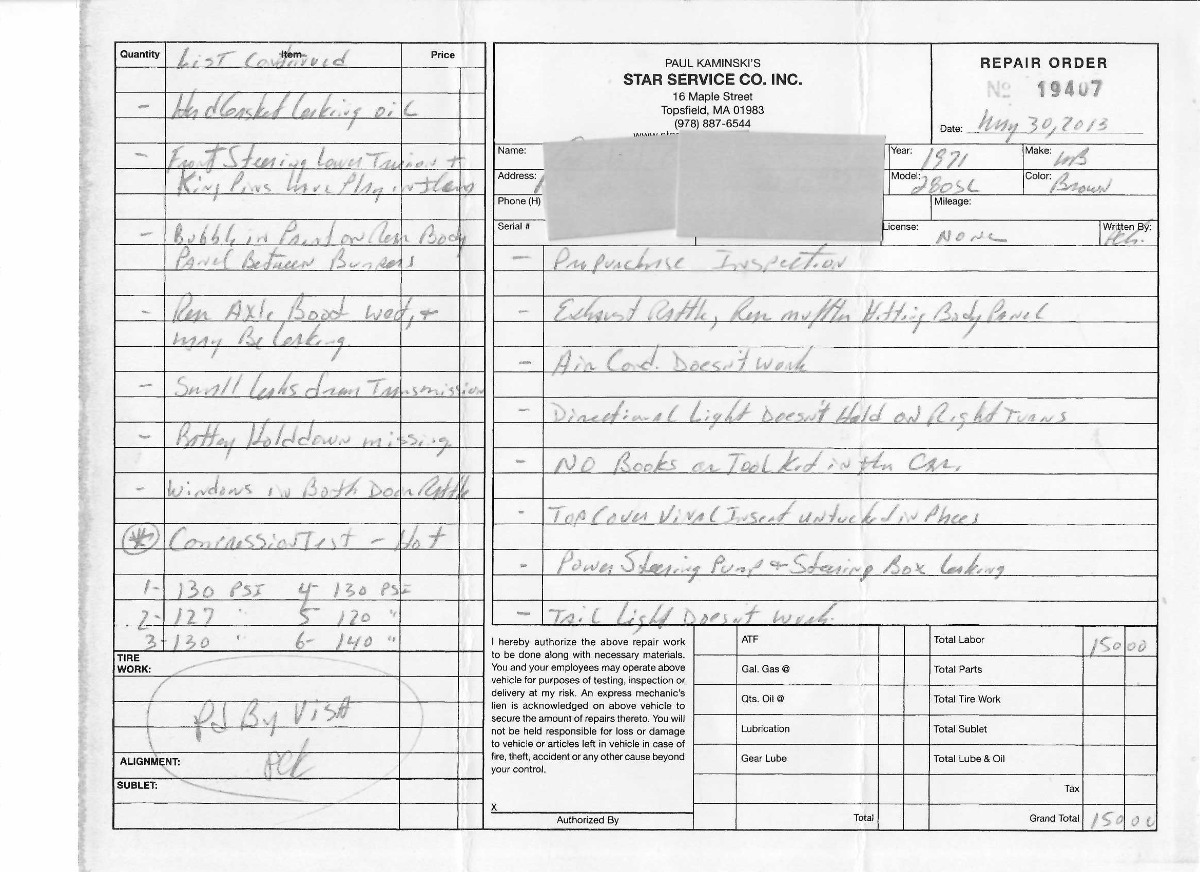 Quantity Item Price
List Continued
- Head Gasket Leaking oil
- Front Steering Lower Trunion +
King Pins Have Play in them
- Bubble in Paint on Rear Body
Panel Between Bumpers
- Rear Axle Boot wet, +
may Be Leaking.
- Small leaks from Transmission
- Battery Holddown missing
- Windows in Both Doors Rattle
* Compression Test - Hot
1- 130 PSI 4- 130 PSI
2- 127 " 5 120 "
3- 130 " 6- 140 "
TIRE
WORK:
Pd By Visa
PCK
ALIGNMENT:
SUBLET:
PAUL KAMINSKI'S
STAR SERVICE CO. INC.
16 Maple Street
Topsfield, MA 01983
(978) 887-6544
REPAIR ORDER
No 19407
Date: May 30, 2013
Name:
Address:
Phone (H)
Serial #
Year: 1971
Make: MB
Model: 280SL
Color: Brown
Mileage:
License: NONE
Written By: PCK.
- Prepurchase Inspection
- Exhaust Rattle, Rear muffler Hitting Body Panel
- Air Cond. Doesn't work
- Directional Light Doesn't Hold on Right Turns
- NO Books or Tool Kit in the Car.
- Top Cover Vinal Insert untucked in Places
- Power Steering Pump + Steering Box Leaking
- Tail Light Doesn't work.
I hereby authorize the above repair work
to be done along with necessary materials.
You and your employees may operate above
vehicle for purposes of testing, inspection or
delivery at my risk. An express mechanic's
lien is acknowledged on above vehicle to
secure the amount of repairs thereto. You will
not be held responsible for loss or damage
to vehicle or articles left in vehicle in case of
fire, theft, accident or any other cause beyond
your control.
X
Authorized By
ATF
Gal. Gas @
Qts. Oil @
Lubrication
Gear Lube
Total
Total Labor 150 00
Total Parts
Total Tire Work
Total Sublet
Total Lube & Oil
Tax
Grand Total 150 00